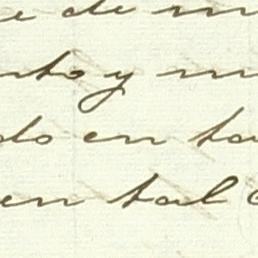 e de m
nto y m
do en ta
en tal